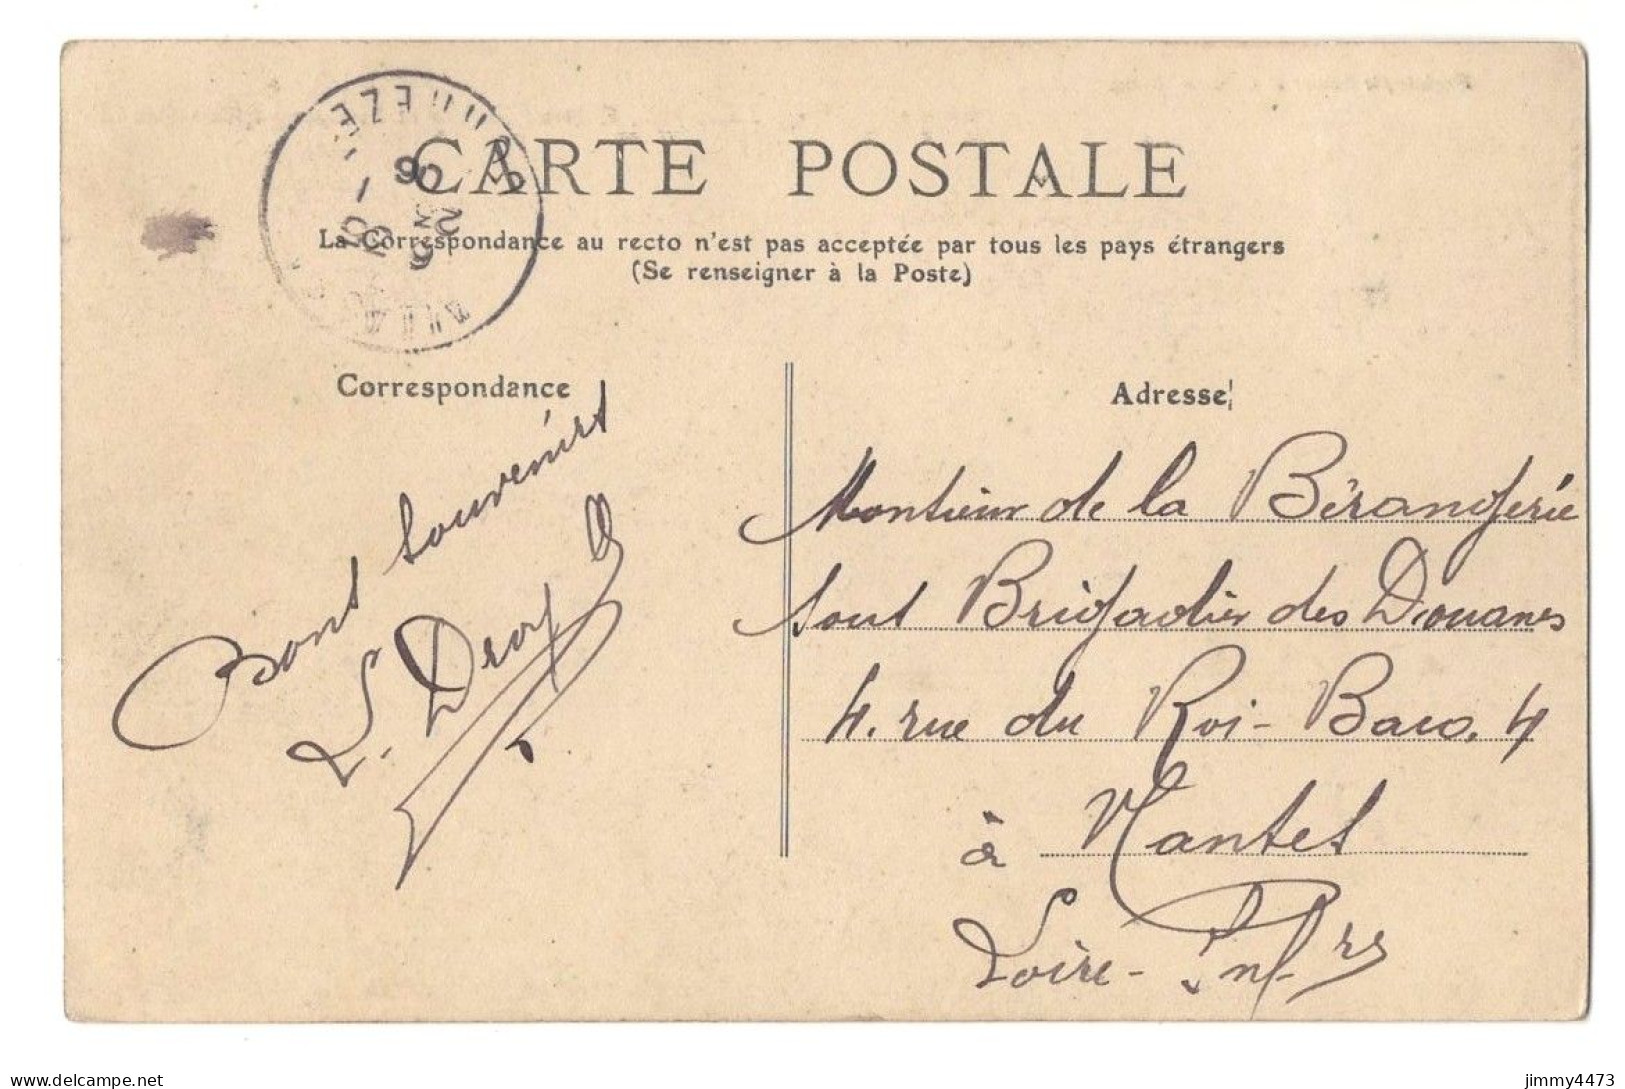 CARTE POSTALE
La Correspondance au recto n'est pas acceptée par tous les pays étrangers
(Se renseigner à la Poste)
Correspondance
Bons souvenirs
L. Droy
Adresse
Monsieur de la Bérangerie
Sous Brigadier des Douanes
4. rue du Roi-Baco. 4
à Nantes
Loire-Inf-re
delcampe.net
jimmy4473